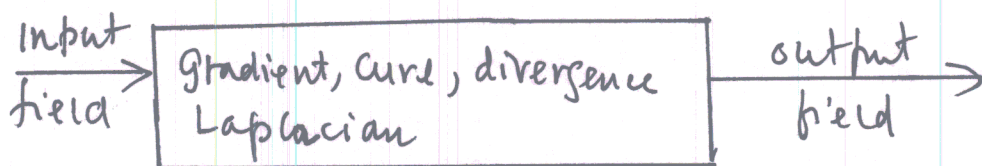 Input
field
gradient, Curl, divergence
Laplacian
output
field